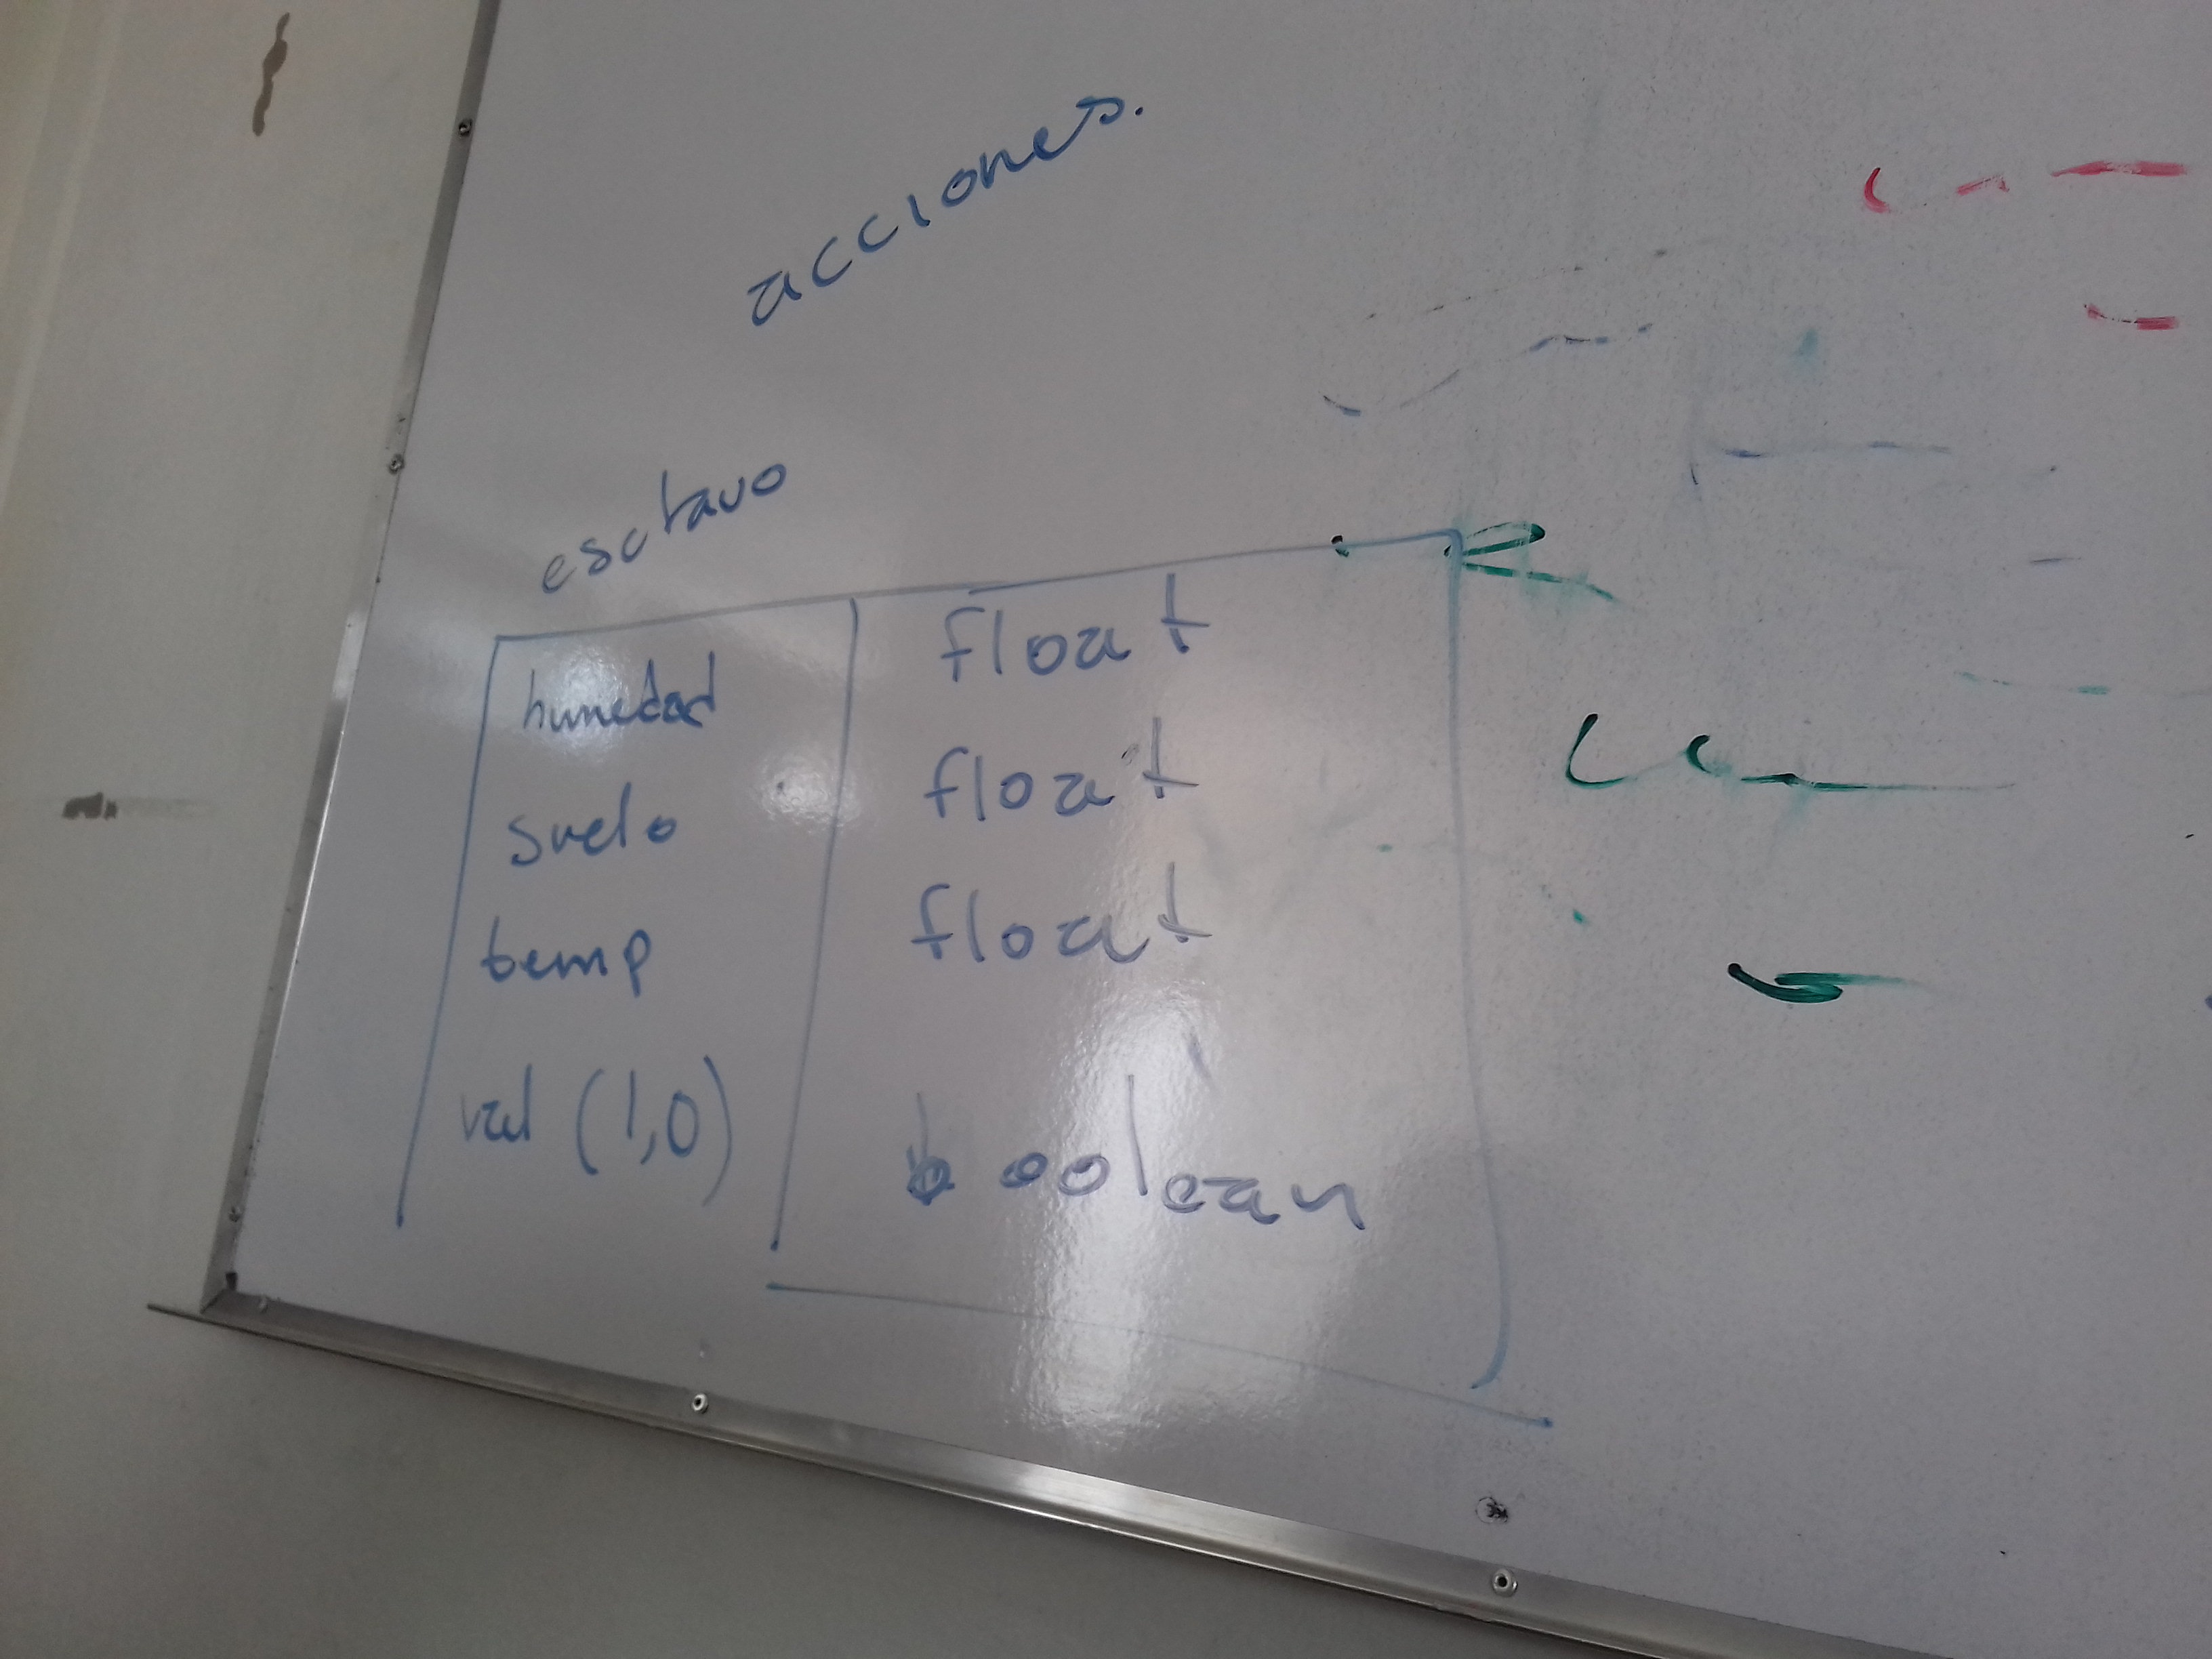 acciones.
esclavo
humedad float
suelo float
temp float
val (1,0) boolean